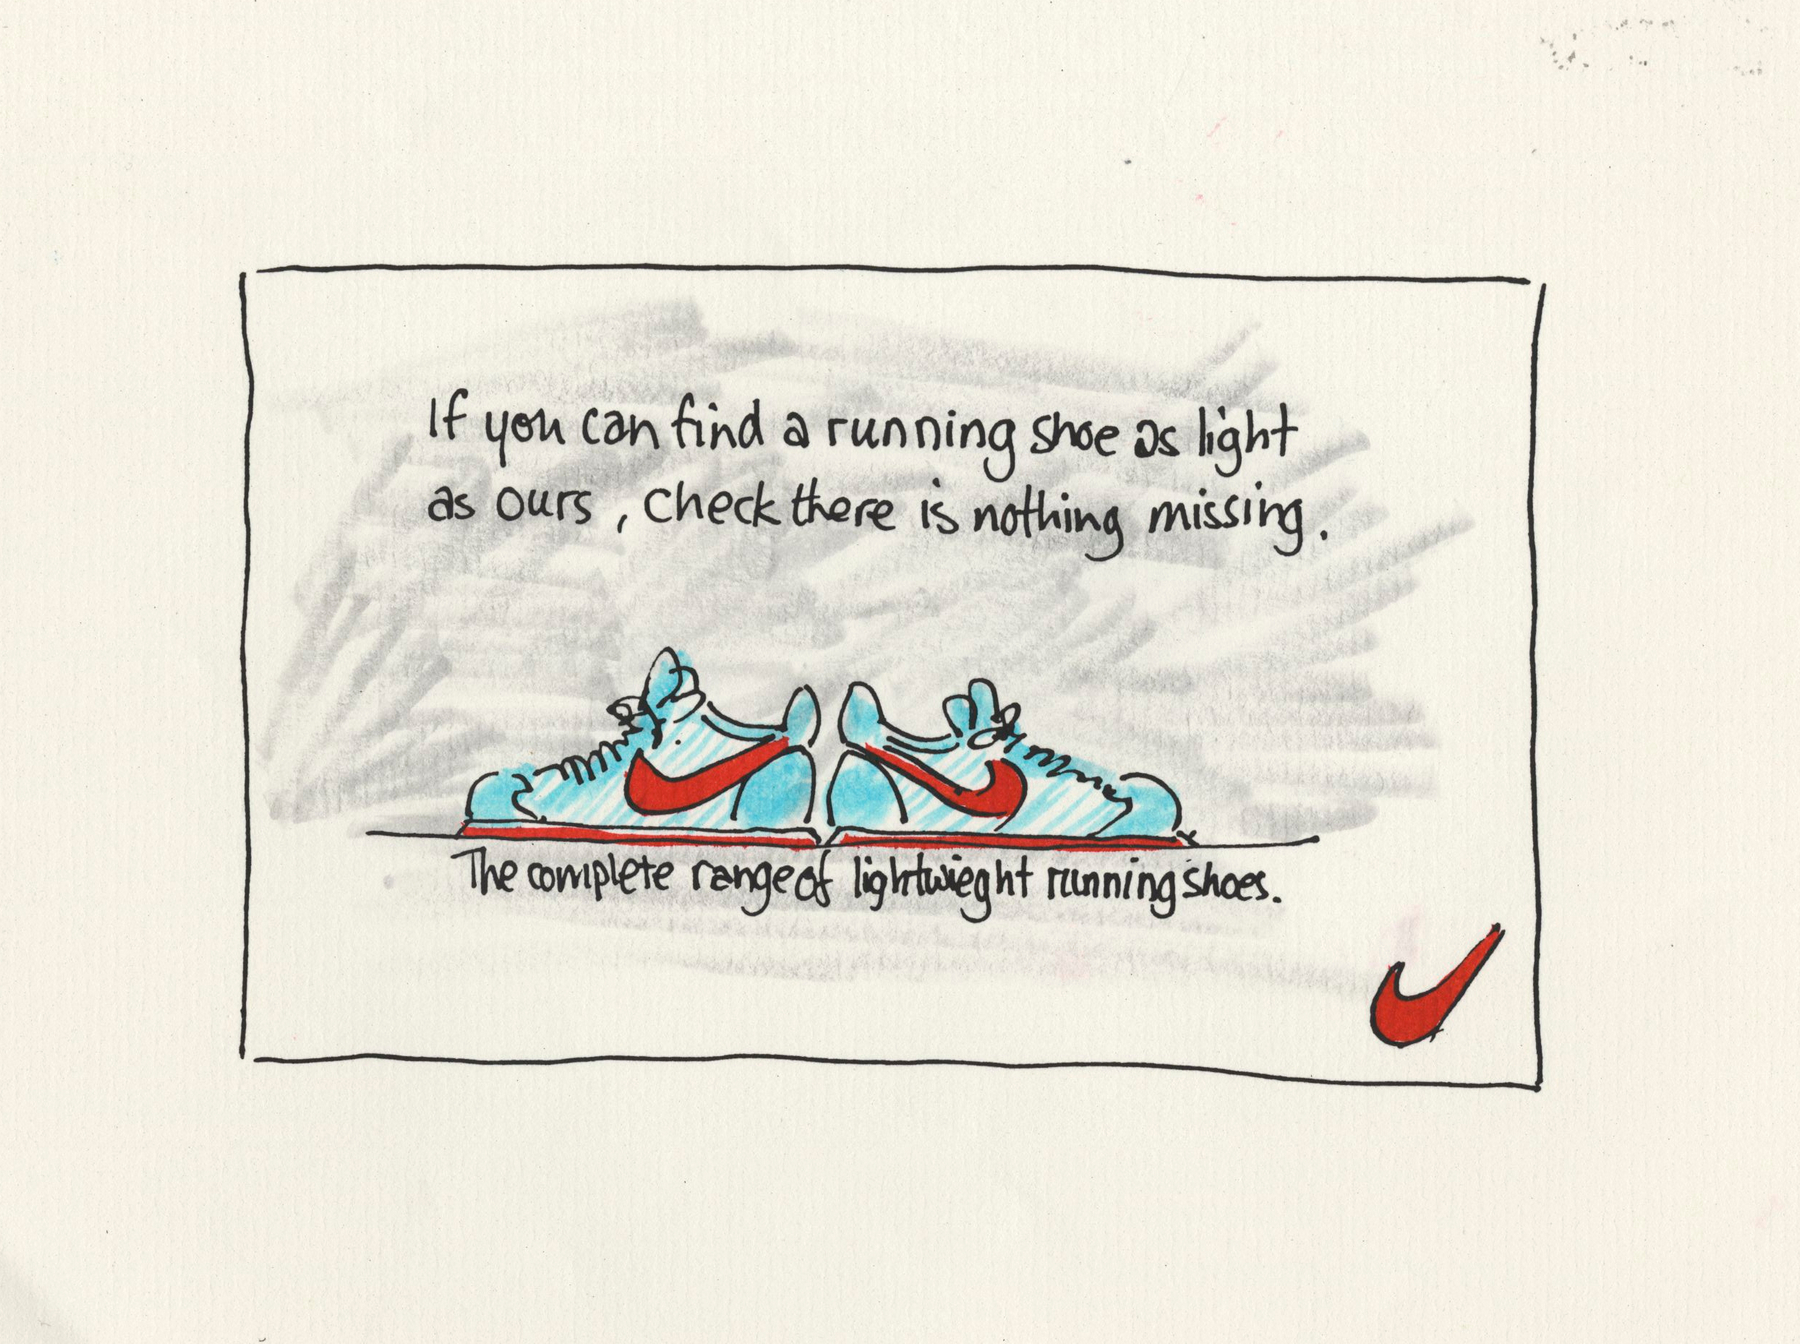 If you can find a running shoe as light
as ours, check there is nothing missing.
The complete range of lightwieght running shoes.